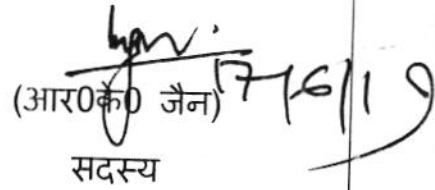 (आर0के0 जैन) 17/6/19
सदस्य